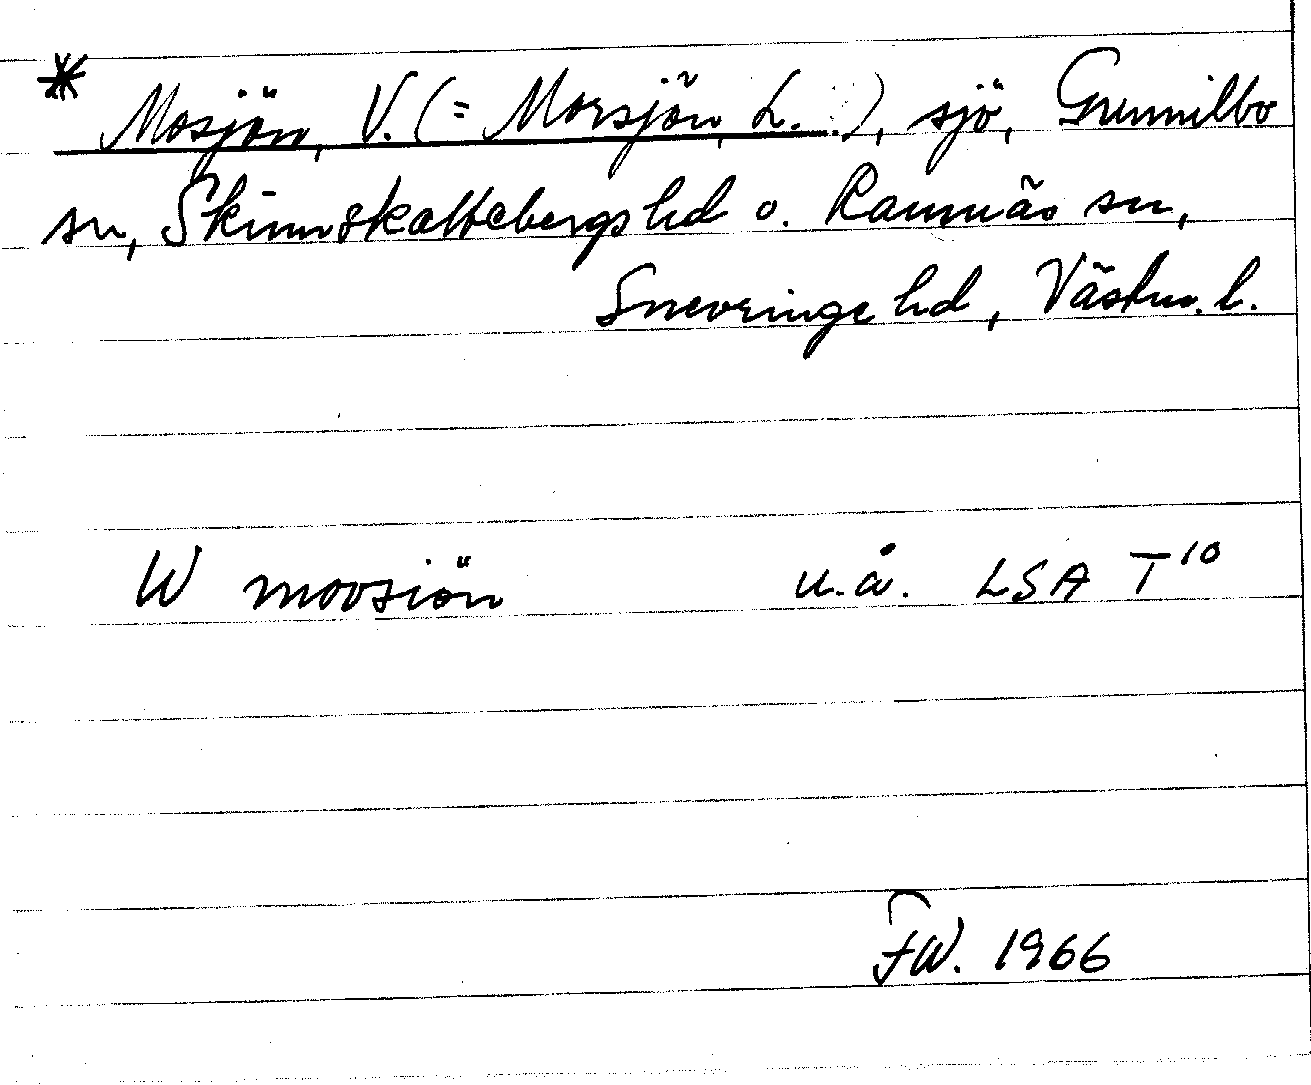 * Mosjön, V. (= Morsjön, L. ), sjö, Gunnilbo
sn, Skinnskattebergs hd o. Ramnäs sn,
Snevringe hd, Västm. l.
W moosiön u.å. LSA T10
FW. 1966